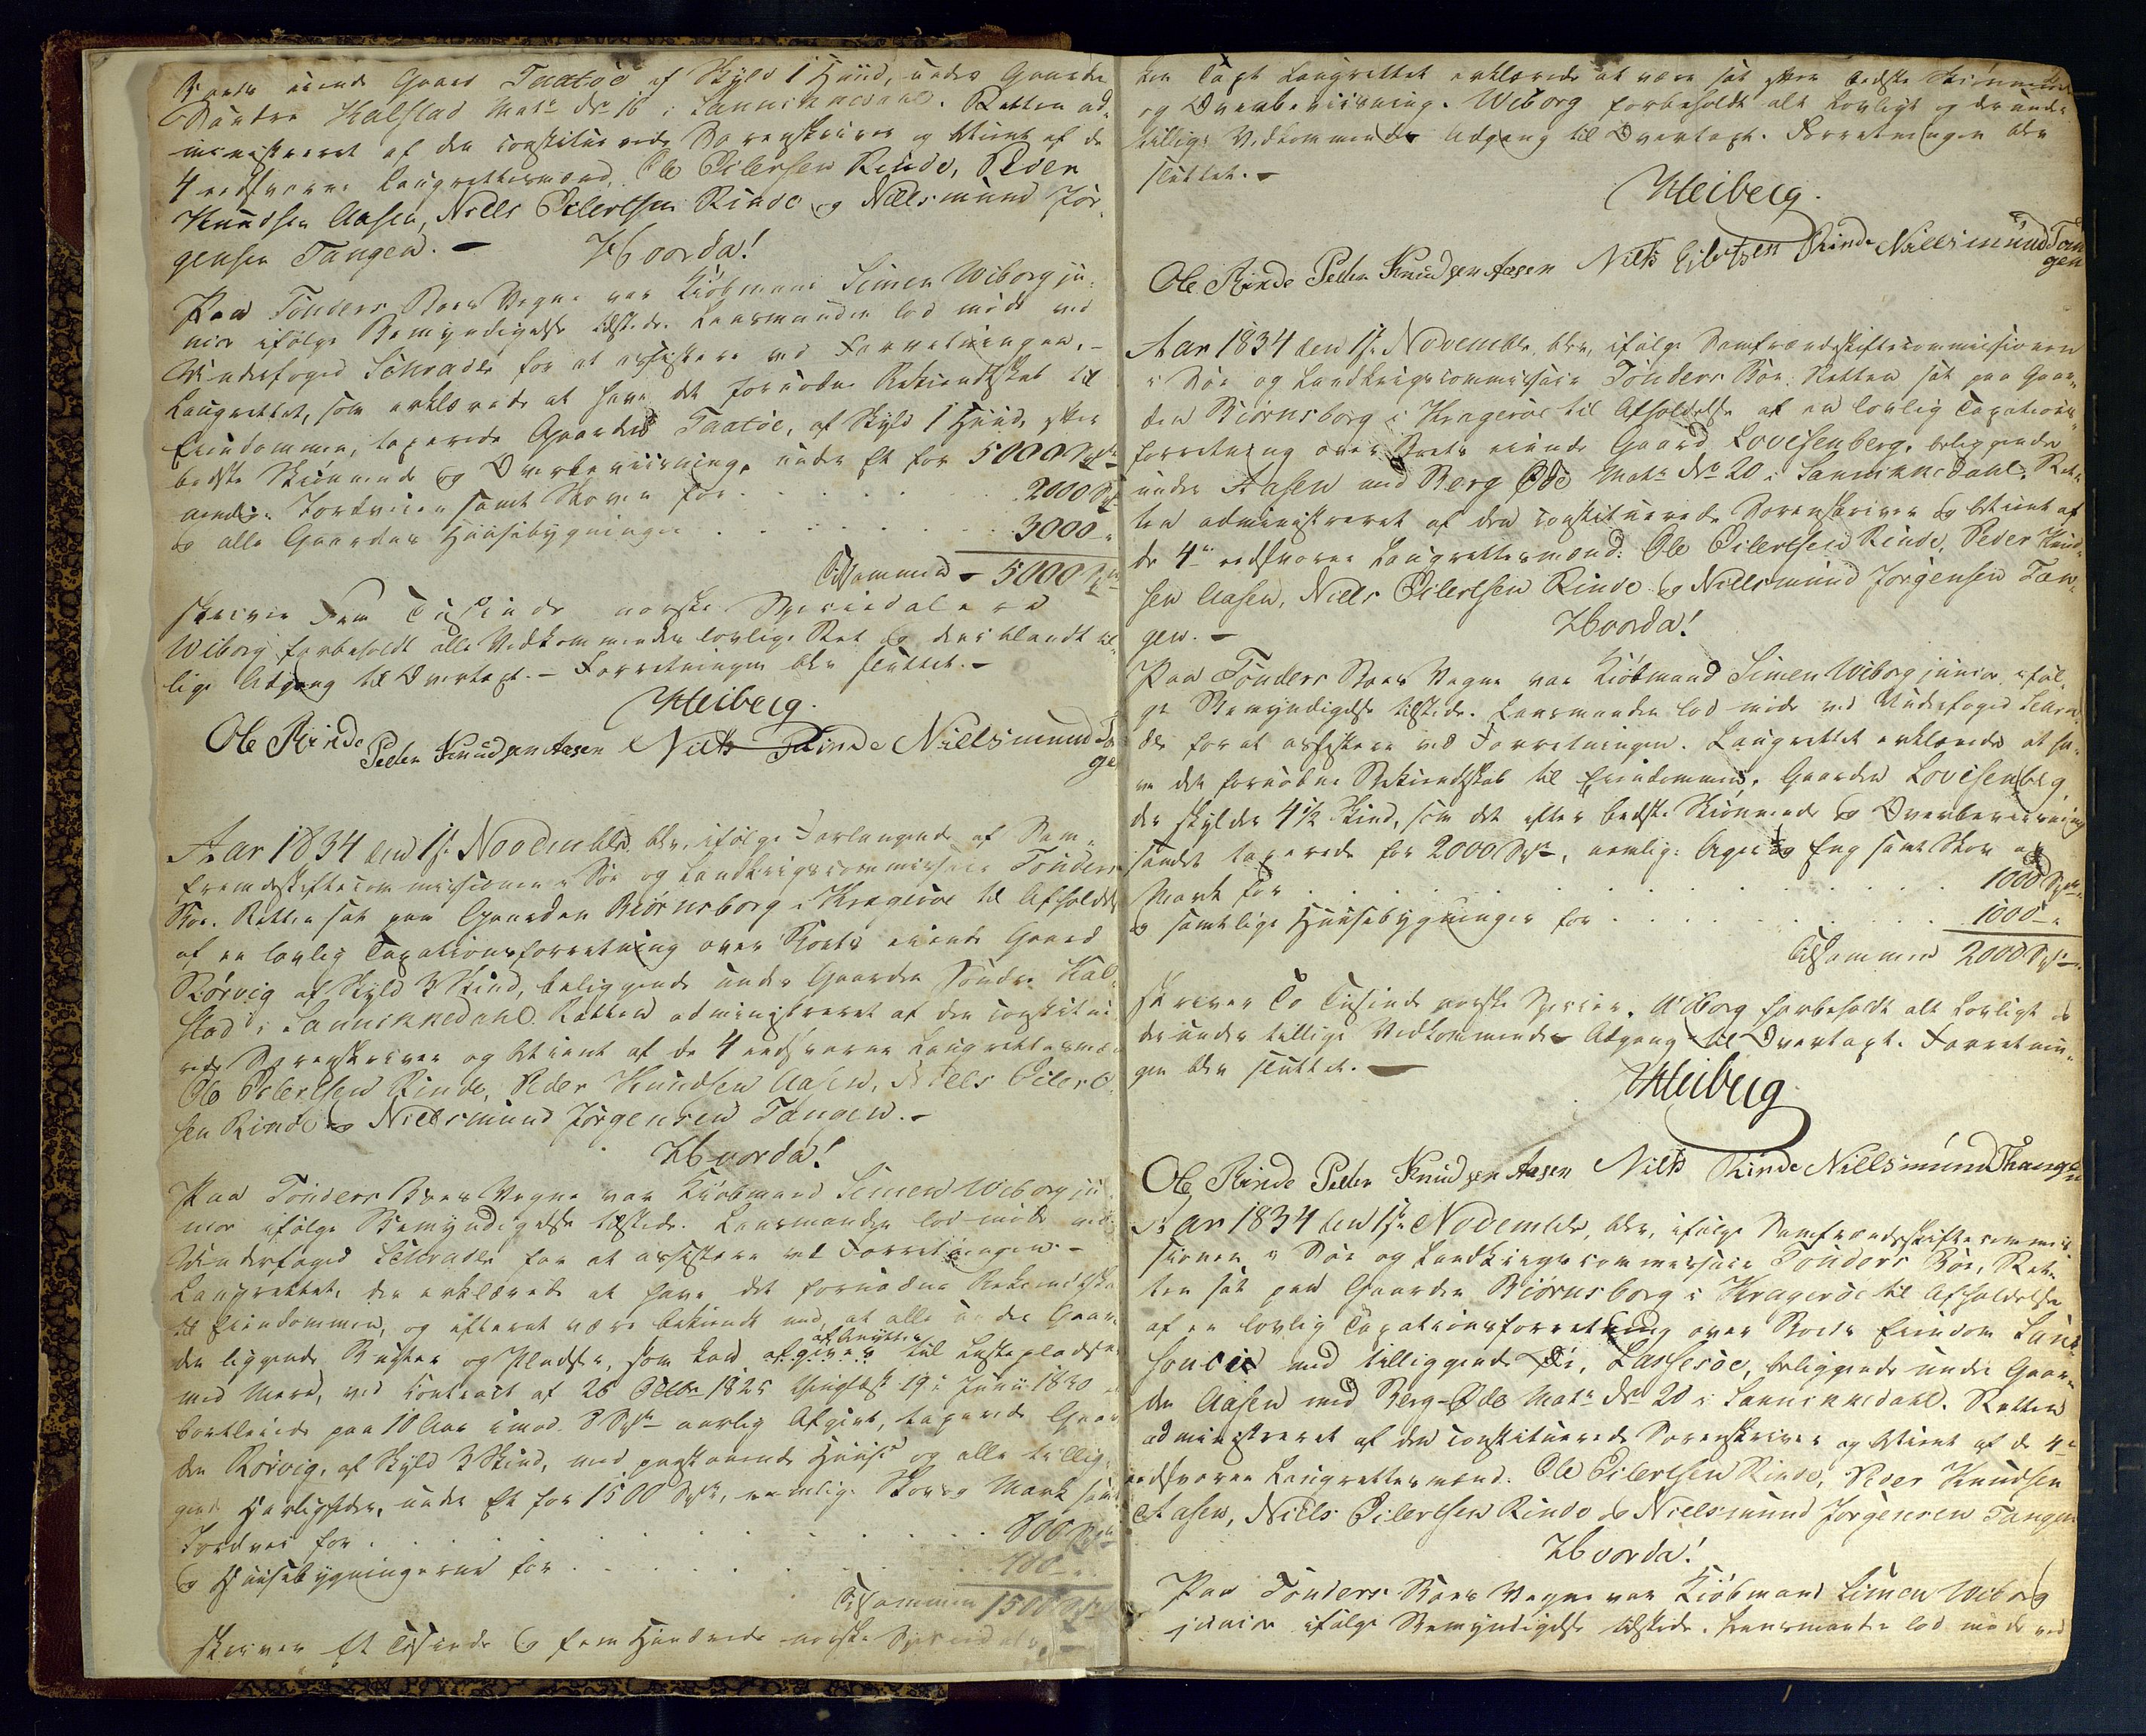 Boets eiende Gaard Taatöe af Skyld 1 Huud, under Gaarden
Söndre Kalstad Mat: No 18 i Sannikedahl. Retten ad-
ministreret af den constituerede Sorenskriver og betient af de
4 eedsvorne Laugrettesmænd, Ole Eilertsen Rinde, Peder
Knudsen Aasen, Niels Eilertsen Rinde og Nillsmund Jör-
gensen Tangen. –
Hvorda!
Paa Tönders Boes Vegne var Kiöbmand Simen Wiborg ju-
nior ifölge Bemyndigelse tilstede. Lensmanden lod möde ved
Underfoged Schrader for at assistere ved Forretningen. –
Laugrettet, som erklærede at have det fornödne Kiendskab til
Eiendommen, taxerede Gaarden Taatöe, af Skyld 1 Huud, efter
bedste Skiönnende og Overbeviisning, under Et for 5000 Spd
nemlig: Jordveien samt Skoven for . . . . . . 2000 Spd
og alle Gaardens Huusebygninger . . . . . . 3000 "
Tilsammen – 5000 Spd
skriver Fem Tusinde norske Speciedalere
Wiborg forbeholdt alle Vedkommendes lovlige Ret og deriblandt til-
lige Adgang til Overtaxt. – Forretningen blev sluttet. –
Heiberg.
Ole Rinde Peder Knudsen Aasen Niels Rinde Nillsmund
Aar 1834 den 1ste November blev, ifölge Forlangende af Sam-
frendeskiftecommissionen i Söe og Landkrigscommissair Tönders
Boe, Retten sat paa Gaarden Biörnsborg i Krageröe til Afholdelse
af en lovlig Taxationsforretning over Boets eiende Gaard
Rörvig af Skyld 3 Skind, beliggende under Gaarden Söndre Kal-
stad i Sannikkedahl. Retten administreret af den constitue-
rede Sorenskriver og betient af de 4 eedsvorne Laugrettesmænd
Ole Eilertsen Rinde, Peder Knudsen Aasen, Niels Eilert-
sen Rinde og Nielsmund Jörgensen Tangen. –
Hvorda!
Paa Tönders Boes Vegne var Kiöbmand Simen Wiborg ju-
nior ifölge Bemyndigelse tilstede. Lensmanden lod möde ved
Underfoged Schrader for at assistere ved Forretningen –
Laugrettet, der erklærede at have det fornödne Kiendskab
til Eiendommen, og ifterat være bekiendt med, at alle under Gaar-
den liggende Bugter og Pladser, som kan afbenyttes
afgives til Lastepladser
med Mere, ved Contract af 26 Octbr 1825 thinglæst 19 Juni 1830 er
bortleiede paa 10 Aar imod 8 Spd aarlig Afgivt, taxerede Gaar-
den Rörvig, af Skyld 3 Skind, med paastaaende Huuse og alle tillig-
gende Herligheder, under Et for 1500 Spd, nemlig Skov og Mark samt
Jordvei for . . . . . . 800 Spd
og Huusebygningerne for . . . . . . 700 "
Tilsammen 1500 Spd
skriver Et Tusinde og fem Hundrede norske Speciedaler. –
den Taxt Laugrettet erklærede at være sat efter bedste Skiönnende
og Overbeviisning. Wiborg forbeholdt alt Lovligt og derunder
tillige Vedkommendes Adgang til Overtaxt. Forretningen blev
sluttet. –
Heiberg.
Ole Rinde Peder Knudsen Aasen Niels Eilertsen Rinde Nillsmund Tan
gen
Aar 1834 den 1ste November blev, ifölge Samfrendeskiftecommissionen
i Söe og Landkrigscommissair Tönders Boe, Retten sat paa Gaar-
den Biörnsborg i Krageröe til Afholdelse af en lovlig Taxations-
forretning over Boets eiende Gaard Lovisenberg, beliggende
under Aasen med Berg Öde Mat: No 20 i Sannikkedahl. Ret-
ten administreret af den constituerede Sorenskriver og betient af
de 4re eedsvorne Laugrettesmænd: Ole Eilertsen Rinde, Peder Knud-
sen Aasen, Niels Eilertsen Rinde og Nillsmund Jörgensen Tan-
gen. –
Hvorda!
Paa Tönders Boes Vegne var Kiöbmand Simen Wiborg junior, iföl-
ge Bemyndigelse tilstede. Lensmanden lod möde ved Underfoged Schra-
der for at assistere ved Forretningen. Laugrettet erklærede at ha-
ve det fornödne Kiendskab til Eiendommen, Gaarden Lovisenberg,
der skylder 4½ Skind, som det efter bedste Skiönnende og Overbeviisning
samdt taxerede for 2000 Spd, nemlig: Ager og Eng samt Skov og
Mark for . . . . . . 1000 Spd
og samtlige Huusebygninger for . . . . . . 1000 "
Tilsammen 2000 Spd
skriver To Tusinde norske Specier. Wiborg forbeholdt alt Lovligt og
derunder tillige Vedkommendes Adgang til Overtaxt. Forretnin-
gen blev sluttet. –
Heiberg
Ole Rinde Peder Knudsen Aasen Niels Rinde Nillsmund Thangen
Aar 1834 den 1ste November, blev, ifölge Samfrendeskiftecommis-
sionen i Söe og Landkrigscommissair Tönders Boe, Ret-
ten sat paa Gaarden Biörnsborg i Krageröe til Afholdelse
af en lovlig Taxationsforretning over Boets Eiendom
med tilliggende Öe, Lasseröe, beliggende under Gaar-
den Aasen med Berg-Öde Mat: No 20 i Sannikkedahl. Retten
administreret af den constituerede Sorenskriver og betient af de 4re
eedsvorne Laugrettesmænd: Ole Eilertsen Rinde, Peder Knudsen
Aasen, Niels Eilertsen Rinde og Nielsmund Jörgensen Tangen
Hvorda!
Paa Tönders Boes Vegne var Kiöbmand Simen Wiborg
junior ifölge Bemyndigelse tilstede. Lensmanden lod möde ved